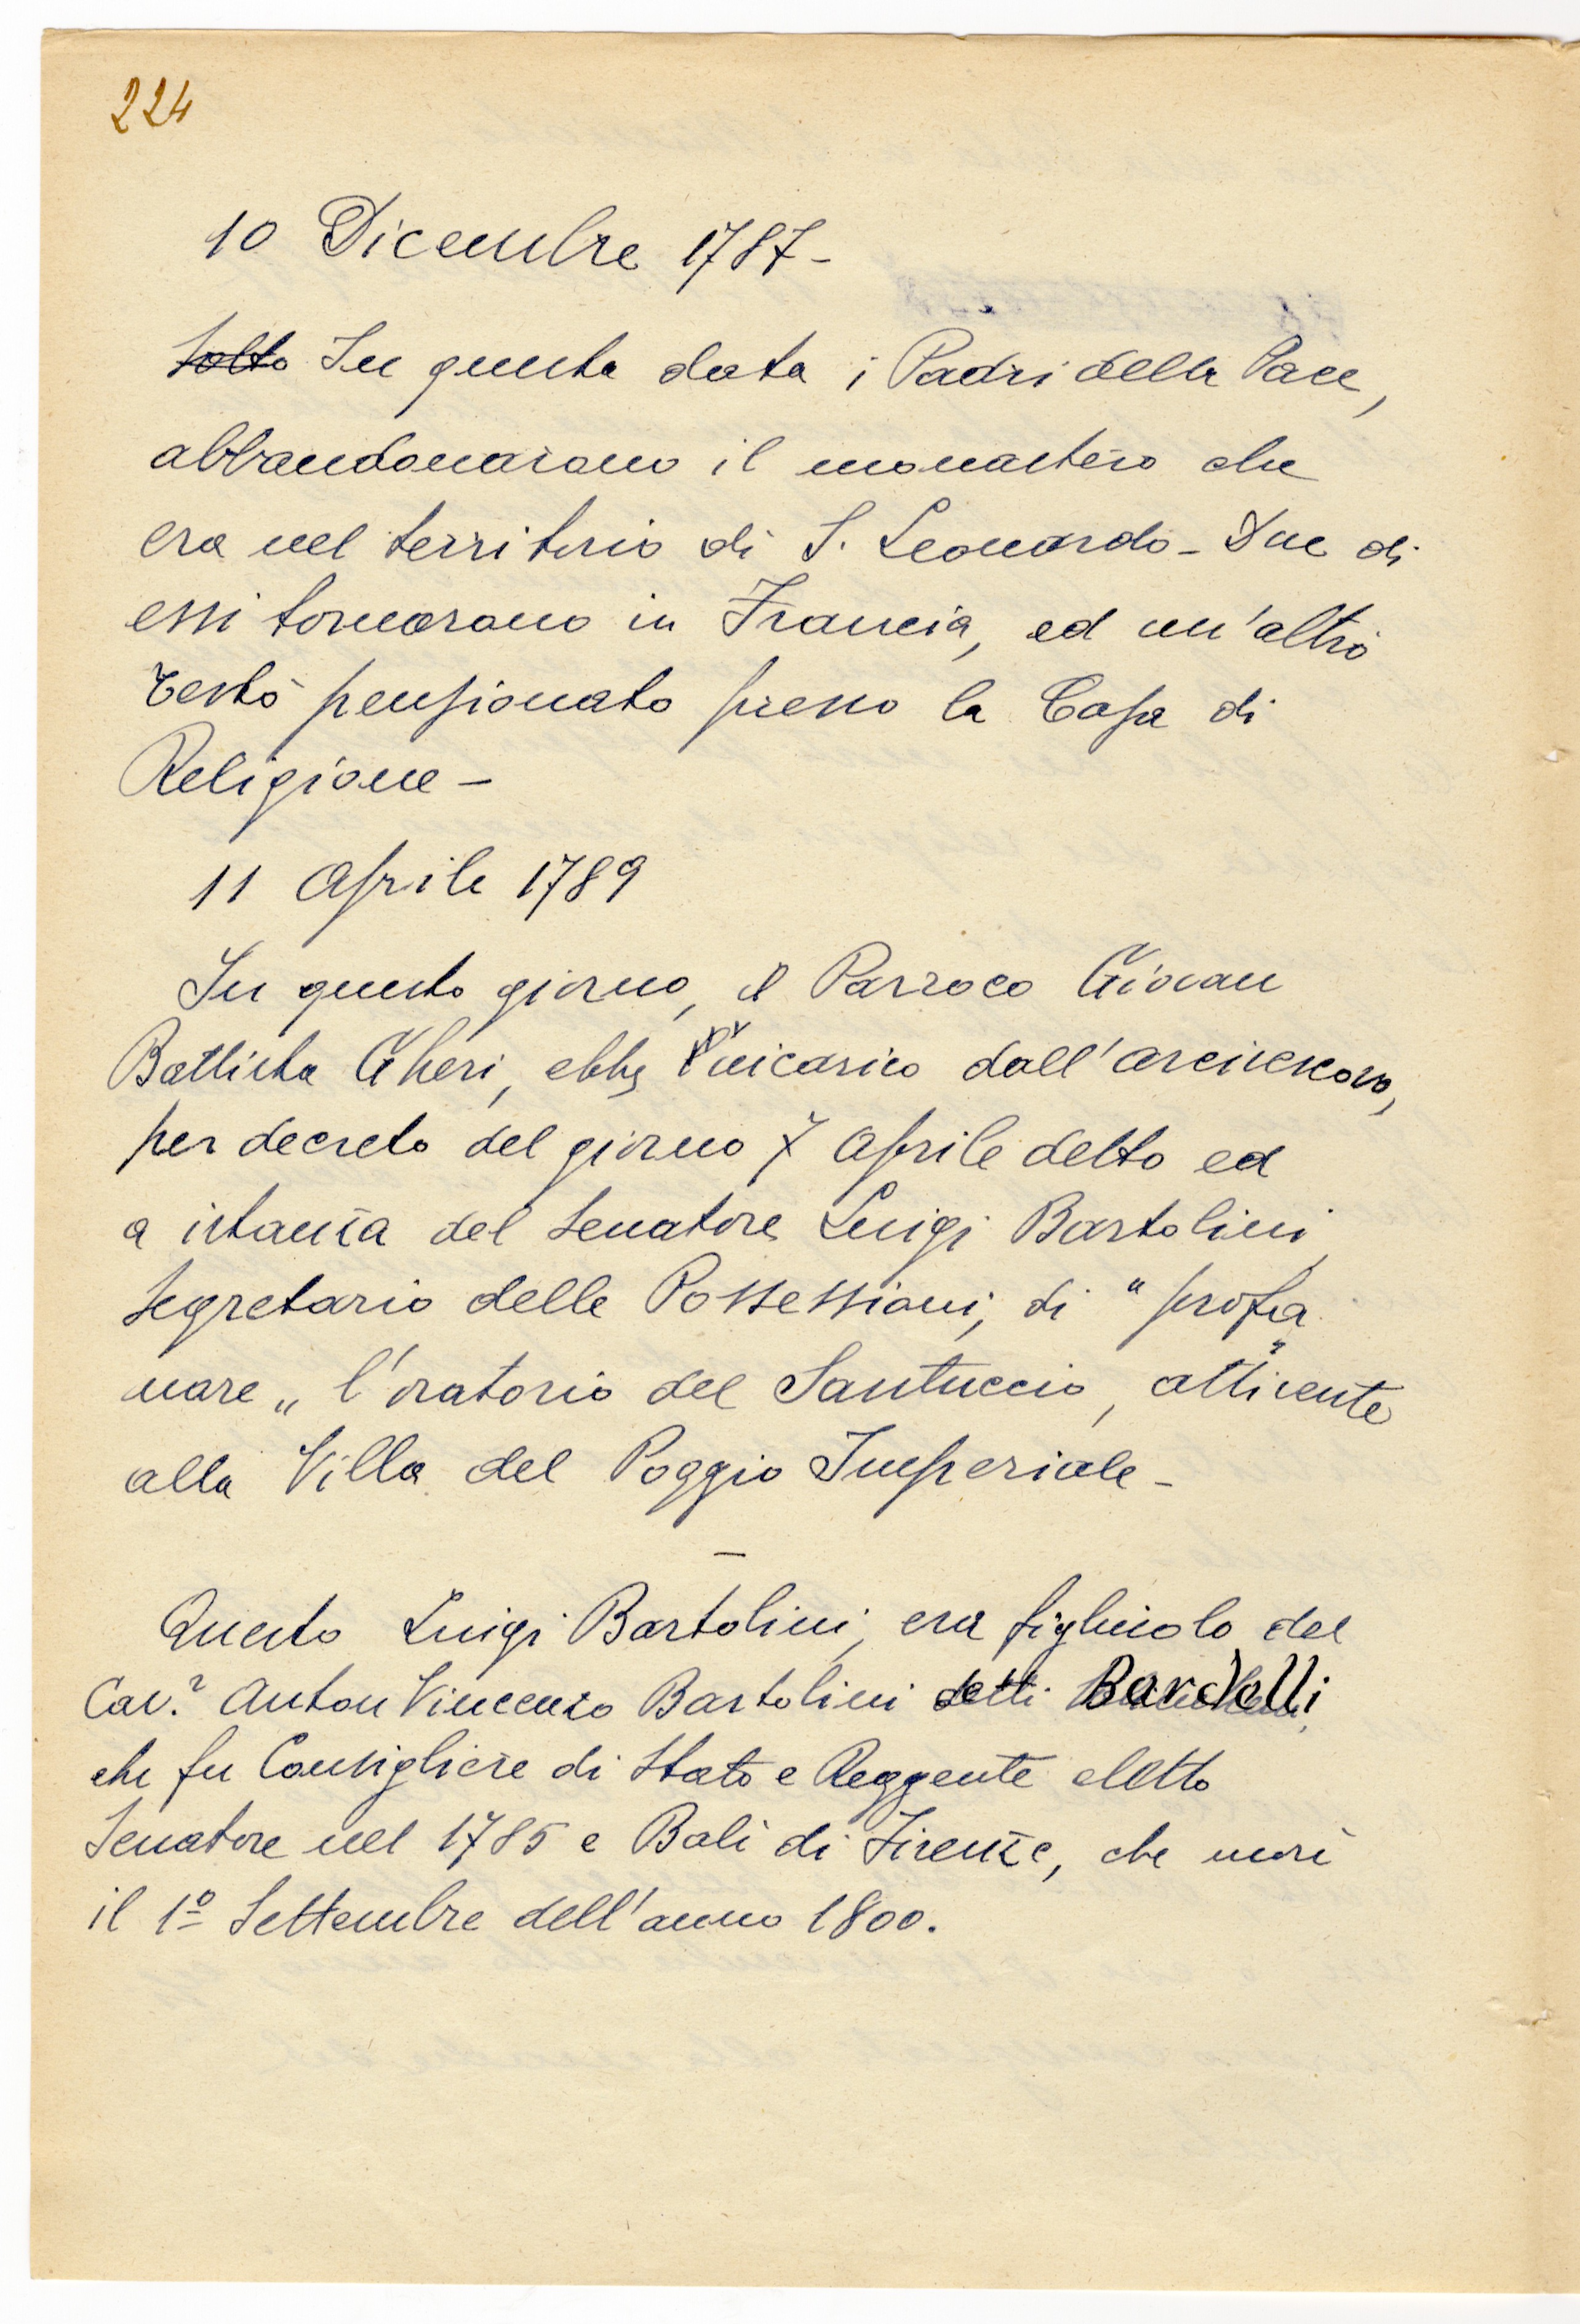 224
10 Dicembre 1787-
Sotto In questa data i Padri della Pace,
abbandonarono il monastero che
era nel territorio di S. Leonardo- Due di
essi tornarono in Francia, ed un'altro
restò pensionato presso la Casa di
Religione -
11 Aprile 1789
In questo giorno, il Parroco Giovan
Battista Gheri, ebbe l'incarico dall'arcivescovo,
per decreto del giorno 7 Aprile detto ed
a istanza del Senatore Luigi Bartolini,
Segretario delle Possessioni, di " profa
nare „ l'oratorio del Santuccio, attinente
alla Villa del Poggio Imperiale -
—
Questo Luigi Bartolini, era figliuolo del
Cav.r Anton Vincenzo Bartolini detti
che fu Consigliere di Stato e Reggente eletto
Senatore nel 1785 e Balì di Firenze, che morì
il 1º Settembre dell'anno 1800.